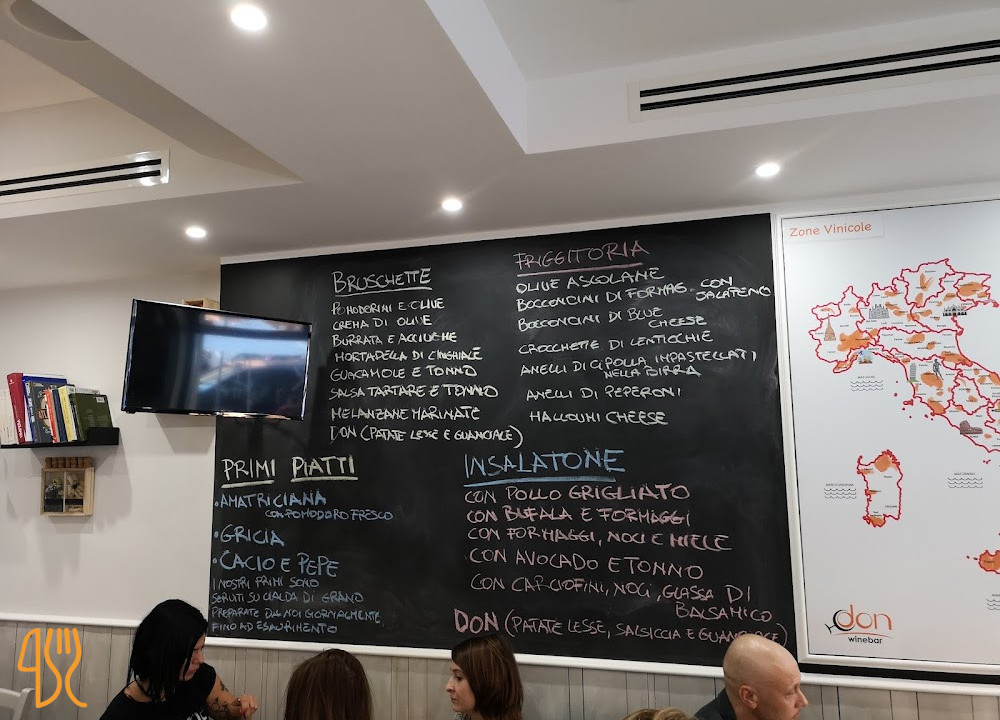 BRUSCHETTE
POMODORINI E OLIVE
CREMA DI OLIVE
BURRATA E ACCIUGHE
MORTADELLA DI CINGHIALE
GUACAMOLE E TONNO
SALSA TARTARE E TONNO
MELANZANE MARINATE
DON (PATATE LESSE E GUANCIALE)
FRIGGITORIA
OLIVE ASCOLANE
BOCCONCINI DI FORMAG. CON
JALAPENO
BOCCONCINI DI BLUE
CHEESE
CROCCHETTE DI LENTICCHIE
ANELLI DI CIPOLLA IMPASTELLATI
NELLA BIRRA
ANELLI DI PEPERONI
HALLOUMI CHEESE
PRIMI PIATTI
• AMATRICIANA
CON POMODORO FRESCO
• GRICIA
• CACIO E PEPE
I NOSTRI PRIMI SONO
SERVITI SU CIALDA DI GRANO
PREPARATE DA NOI GIORNALMENTE
FINO AD ESAURIMENTO
INSALATONE
CON POLLO GRIGLIATO
CON BUFALA E FORMAGGI
CON FORMAGGI, NOCI E MIELE
CON AVOCADO E TONNO
CON CARCIOFINI, NOCI, GLASSA DI
BALSAMICO
DON (PATATE LESSE, SALSICCIA E GUANCIALE)
Zone Vinicole
don
winebar